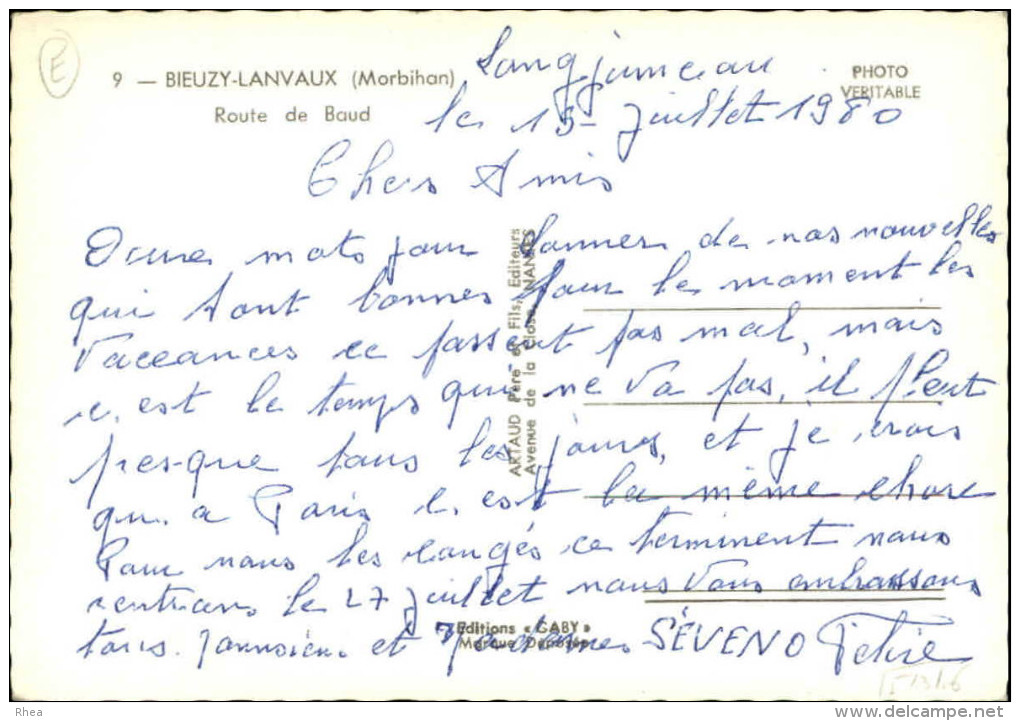 E
9 — BIEUZY-LANVAUX (Morbihan)
Route de Baud
PHOTO
VERITABLE
Langjumeau
le 15 - juillet 1980
Chers Amis
mots pour donner de nos nouvelles
qui sont bonnes pour le moment les
Vaccances ce passent pas mal, mais
c. est le temps qui ne va pas, il pleut
pres-que tous les jours, et je crois
qu. a Paris c. est la même chose
Pour nous les congés ce terminent nous
rentrons le 27 juillet nous Vous embrassons
tous. et SÉVENO
ARTAUD Père et Fils, Editeurs
Avenue de la Close, NANTES
Editions « GABY »
Marque Déposée
Rhea
www.delcampe.net